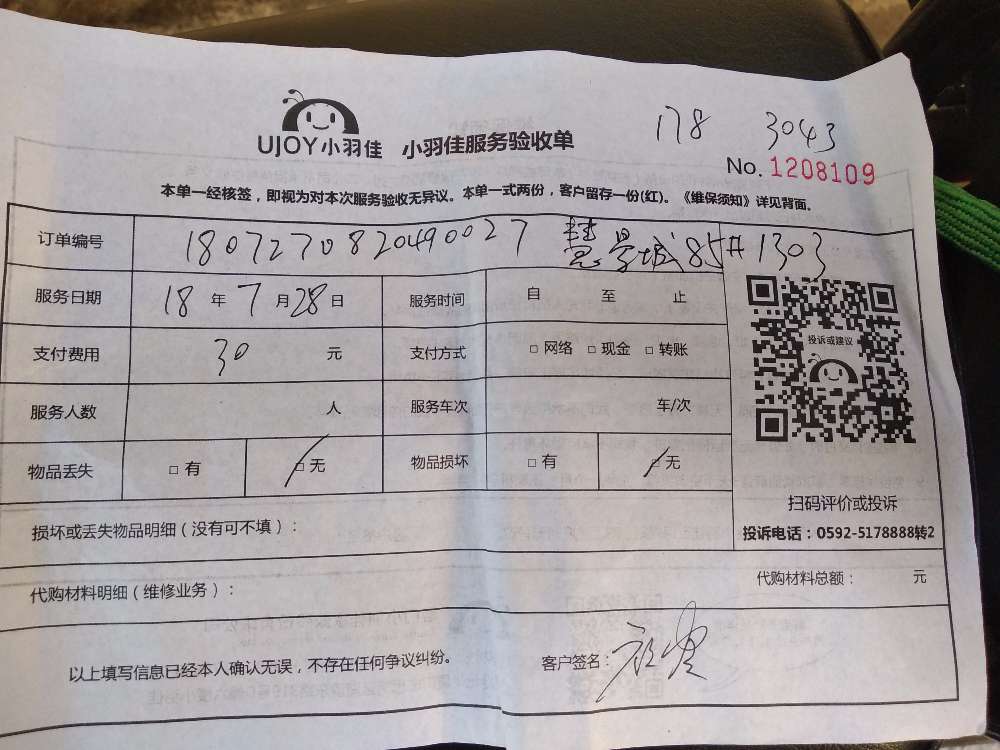 178 3043
UJOY小羽佳 小羽佳服务验收单
No. 1208109
本单一经核签，即视为对本次服务验收无异议。本单一式两份，客户留存一份(红)。《维保须知》详见背面。
订单编号 1807270820490027 慧景城85#1303
服务日期 18 年 7 月 28 日 服务时间 自 至 止
投诉或建议
支付费用 30 元 支付方式 □ 网络 □ 现金 □ 转账
服务人数 人 服务车次 车/次
物品丢失 □ 有 □ 无 物品损坏 □ 有 □ 无
扫码评价或投诉
损坏或丢失物品明细（没有可不填）：
投诉电话：0592-5178888转2
代购材料明细（维修业务）：
代购材料总额： 元
以上填写信息已经本人确认无误，不存在任何争议纠纷。 客户签名：